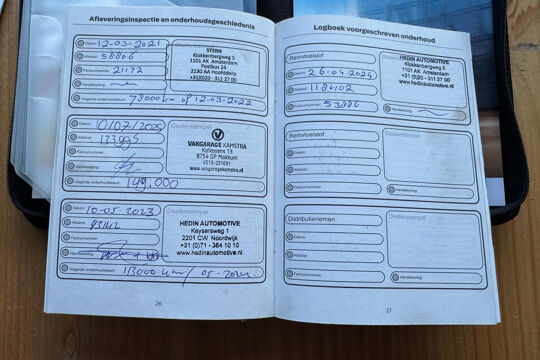 Afleveringsinspectie en onderhoudsgeschiedenis
Datum: 12-03-2021
Afstand: 58806
Factuurnummer: 21172
Handtekening:
Volgende onderhoudsdatum: 78000 km of 12-03-2022
STERN
Klokkenbergweg 5
1101 AK Amsterdam
Postbus 24
2130 AA Hoofddorp
+31(0)20 - 311 27 00
Datum: 10/07/2025
Afstand: 133995
Factuurnummer:
Handtekening:
Volgende onderhoudsdatum: 149.000
Dealerstempel
VAKGARAGE KAMSTRA
Kalkovens 13
8754 GP Makkum
0515-231691
www.vakgaragekamstra.nl
Datum: 10-05-2023
Afstand: 93142
Factuurnummer:
Handtekening:
Volgende onderhoudsdatum: 113000 km / 05-2024
Dealerstempel
HEDIN AUTOMOTIVE
Keysersweg 1
2201 CW Noordwijk
+31 (0)71 - 364 10 10
www.hedinautomotive.nl
26
Logboek voorgeschreven onderhoud
Remvloeistof
Datum: 26-04-2024
Afstand: 118402
Factuurnummer: 53886
HEDIN AUTOMOTIVE
Klokkenbergweg 5
1101 AK Amsterdam
+31 (0)20 - 311 27 00
www.hedinautomotive.nl
Handtekening:
Remvloeistof
Datum:
Afstand:
Factuurnummer:
Dealerstempel
Handtekening:
Distributieriemen
Datum:
Afstand:
Factuurnummer:
Dealerstempel
Handtekening:
27